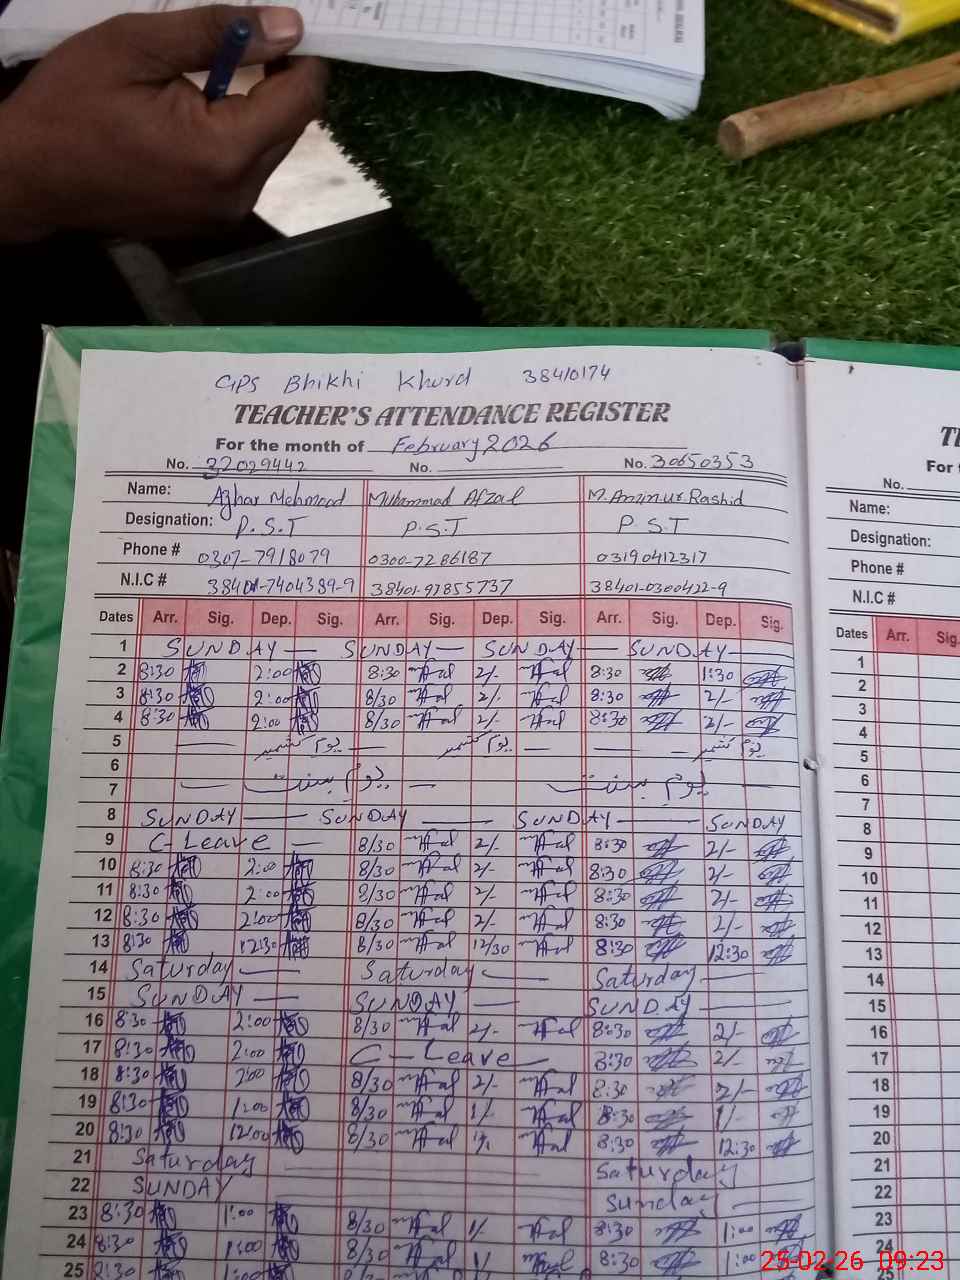 GPS Bhikhi Khurd 38410174
TEACHER'S ATTENDANCE REGISTER
For the month of February 2026
No. 32029442 No. No. 30650353
Name: Azhar Mehmood Muhammad Afzal M. Aminur Rashid
Designation: P.S.T P.S.T P.S.T
Phone # 0307-7918079 0300-7286187 03190412317
N.I.C # 38401-7404389-9 38401-97855737 38401-0300422-9
Dates Arr. Sig. Dep. Sig. Arr. Sig. Dep. Sig. Arr. Sig. Dep. Sig.
1 SUNDAY — SUNDAY — SUNDAY — SUNDAY —
2 8:30 2:00 8:30 2/- 8:30 1:30
3 8:30 2:00 8/30 2/- 8:30 2/-
4 8:30 2:00 8/30 2/- 8:30 2/-
5 — یوم کشمیر — یوم کشمیر — یوم کشمیر
6
7 — یوم بسنت — یوم بسنت —
8 SUNDAY — SUNDAY — SUNDAY — SUNDAY
9 C-Leave — 8/30 2/- 8:30 2/-
10 8:30 2:00 8/30 2/- 8:30 2/-
11 8:30 2:00 8/30 2/- 8:30 2/-
12 8:30 2:00 8/30 2/- 8:30 2/-
13 8:30 12:30 8/30 12/30 8:30 12:30
14 Saturday — Saturday — Saturday —
15 SUNDAY — SUNDAY — SUNDAY —
16 8:30 2:00 8/30 2/- 8:30 2/-
17 8:30 2:00 C-Leave — 8:30 2/-
18 8:30 2:00 8/30 2/- 8:30 2/-
19 8:30 1:00 8/30 1/- 8:30 1/-
20 8:30 12:00 8/30 8:30 12:30
21 Saturday — Saturday
22 SUNDAY — Sunday
23 8:30 1:00 8/30 1/- 8:30 1:00
24 8:30 1:00 8/30 1/- 8:30 1:00
25 8:30 1:00
No.
Name:
Designation:
Phone #
N.I.C #
Dates Arr.
1
2
3
4
5
6
7
8
9
10
11
12
13
14
15
16
17
18
19
20
21
22
23
24
25-02-26 09:23